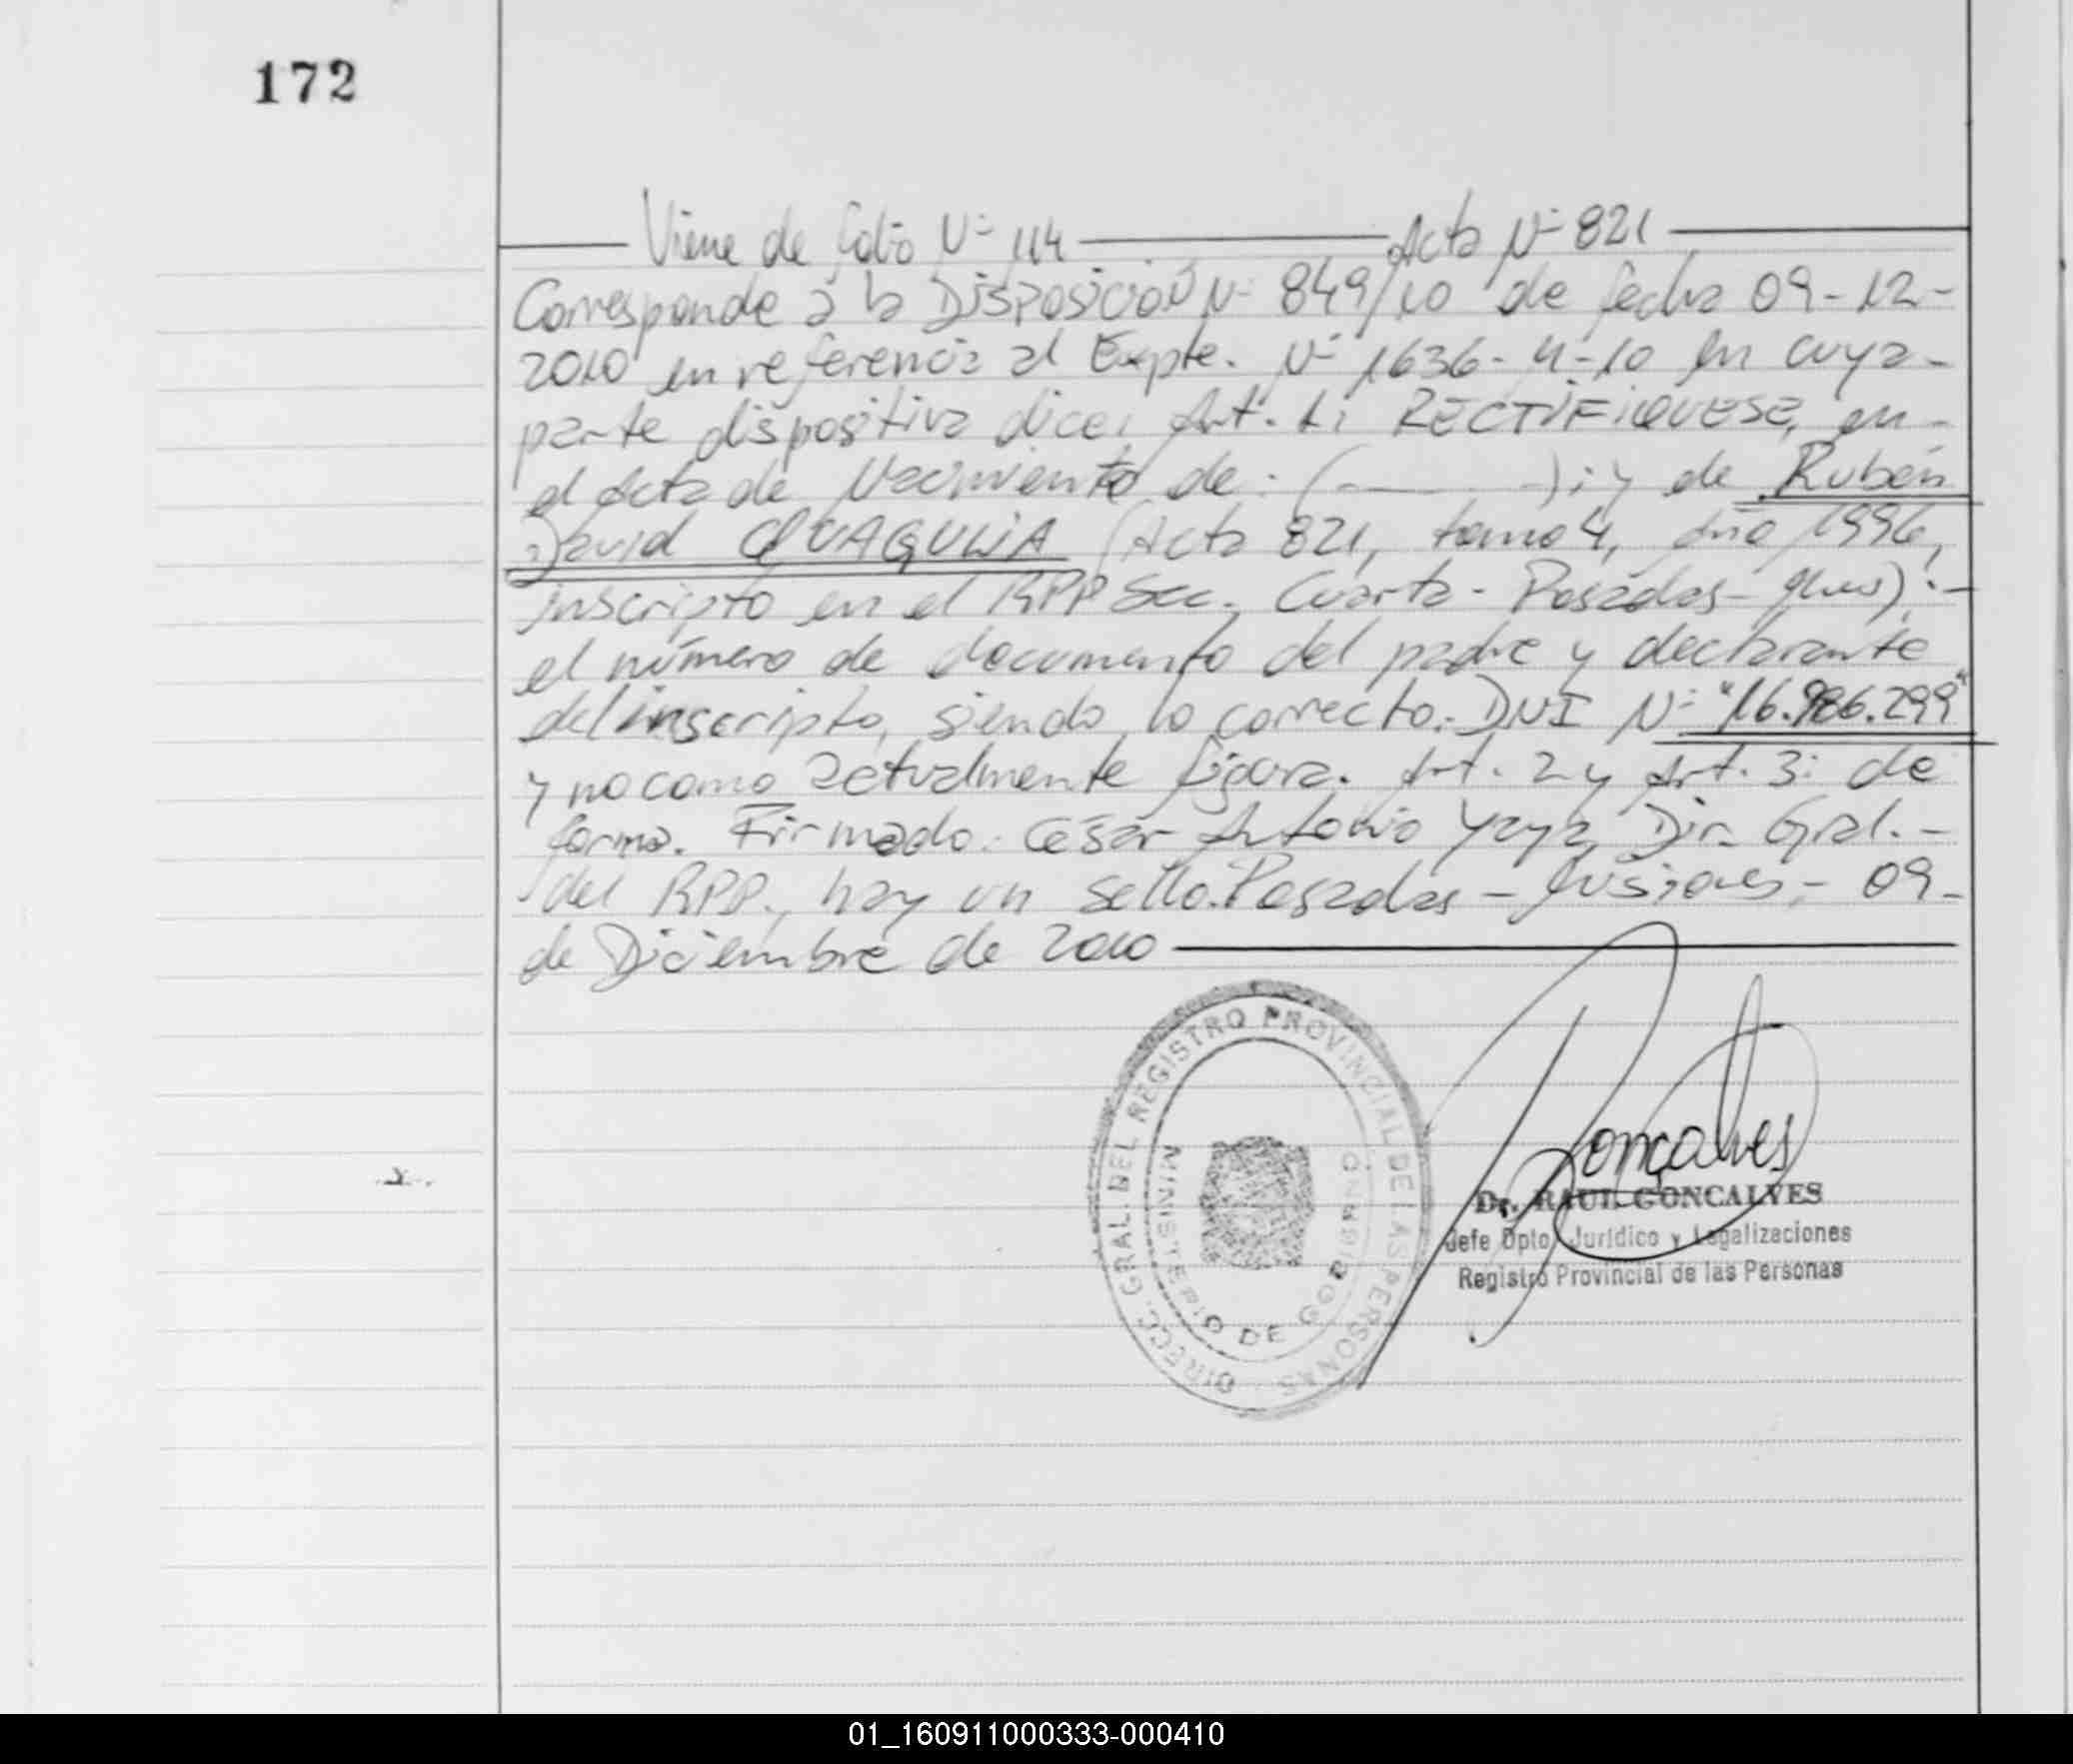 172
Viene de folio Nº 114 Acta Nº 821
Corresponde a la Disposición Nº 849/10 de fecha 09-12-
2010 en referencia al Expte. Nº 1636-4-10 en cuya-
parte dispositiva dice, Art. 1: RECTIFIQUESE, en-
el Acta de Nacimiento de: ( ); y de Rubén
David QUAGULIA (Acta 821, tomo 4, año 1996,
inscripto en el RPP Sec. Cuarta - Posadas - Mnes).-
el número de documento del padre y declarante
del inscripto, siendo lo correcto: DNI Nº "16.986.299"
y no como actualmente figura. Art. 2 y Art. 3: de
forma. Firmado: César Antonio Yaya Dir. Gral.-
del RPP., hay un sello. Posadas - Misiones,- 09-
de Diciembre de 2010
DIRECC. GRAL. DEL REGISTRO PROVINCIAL DE LAS PERSONAS
MINISTERIO DE GOBIERNO
Gonçalves
Dr. RAUL GONCALVES
Jefe Dpto. Jurídico y Legalizaciones
Registro Provincial de las Personas
01_160911000333-000410